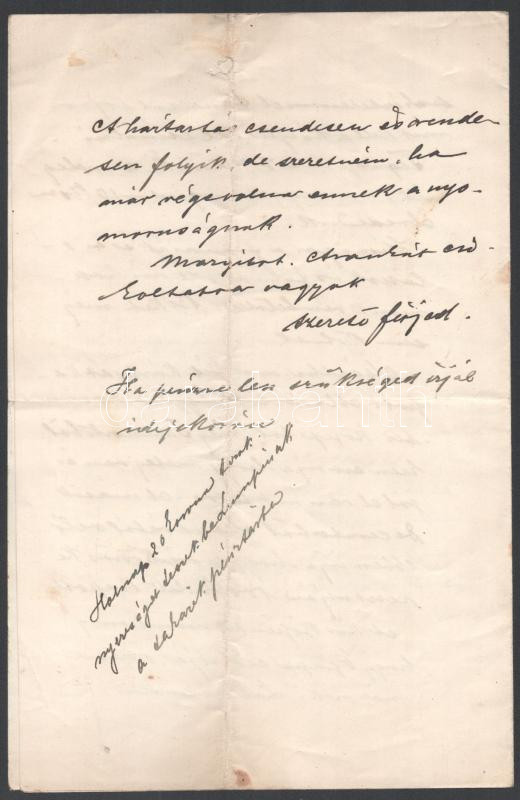 A háztartás csendesen és rende-
sen folyik, de szeretném, ha
már vége volna ennek a nyo-
moruságnak.
Margitot, Arankát csó-
koltatva vagyok
szerető férjed.
Ha pénzre lesz szükséged írjál
idejekorán
Holnap 20 korona
nyereséget teszek be
a takarék pénztárba
darabanth